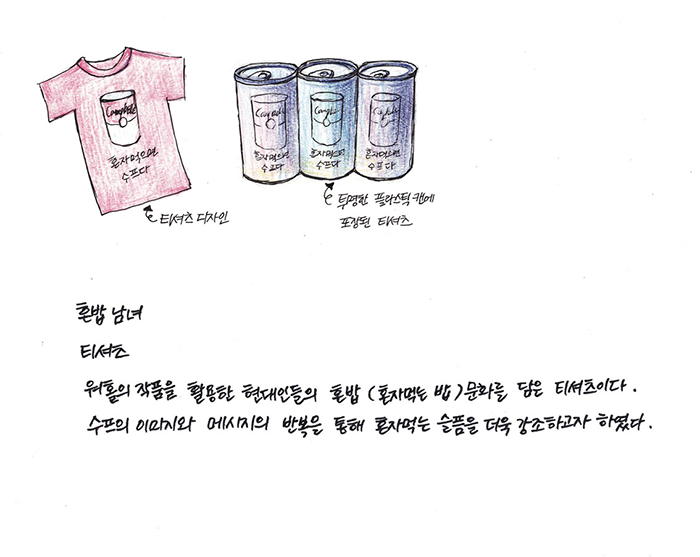 Campbell
혼자먹으면
수프다
티셔츠 디자인
혼자먹으면
수프다
혼자먹으면
수프다
혼자먹으면
수프다
투명한 플라스틱 캔에
포장된 티셔츠
혼밥 남녀
티셔츠
워홀의 작품을 활용한 현대인들의 혼밥 (혼자먹는 밥) 문화를 담은 티셔츠이다.
수프의 이미지와 메시지의 반복을 통해 혼자먹는 슬픔을 더욱 강조하고자 하였다.